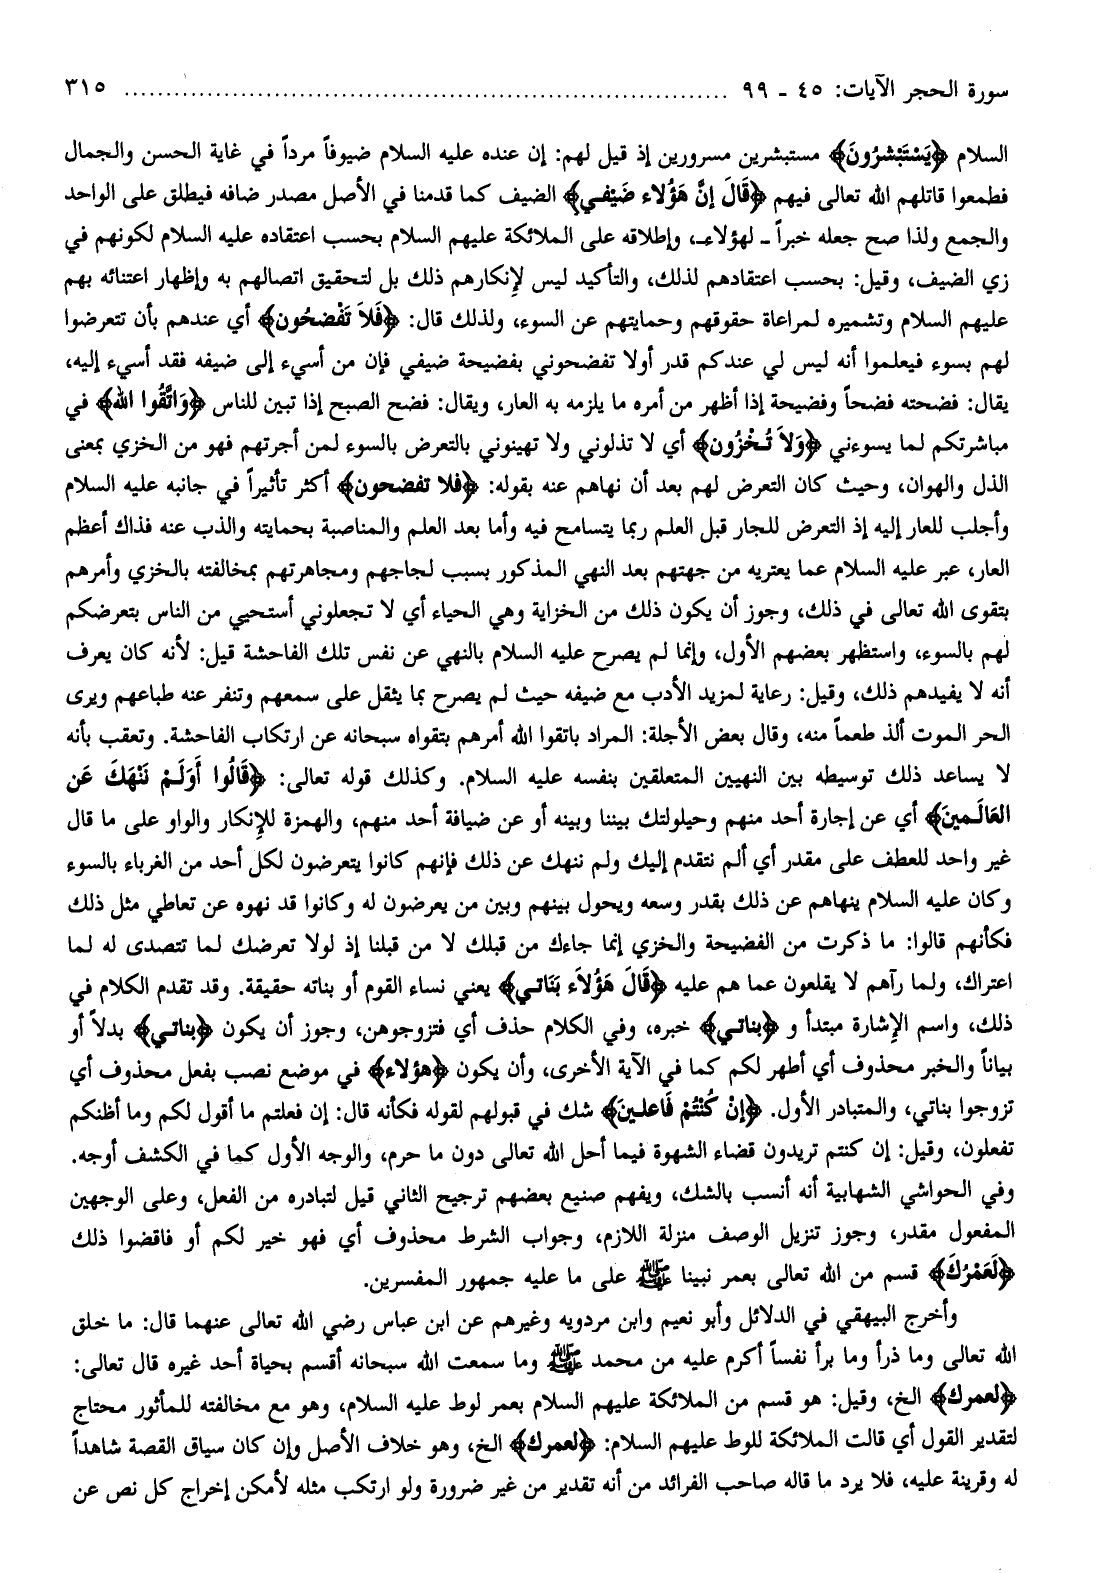 سورة الحجر الآيات: ٤٥ ـ ٩٩ ........................................................................ ٣١٥
السلام ﴿يَسْتَبْشرُونَ﴾ مستبشرين مسرورين إذ قيل لهم: إن عنده عليه السلام ضيوفاً مرداً في غاية الحسن والجمال
فطمعوا قاتلهم الله تعالى فيهم ﴿قَالَ إنَّ هَؤُلاء ضَيْفي﴾ الضيف كما قدمنا في الأصل مصدر ضافه فيطلق على الواحد
والجمع ولذا صح جعله خبراً ـ لهؤلاءـ، وإطلاقه على الملائكة عليهم السلام بحسب اعتقاده عليه السلام لكونهم في
زي الضيف، وقيل: بحسب اعتقادهم لذلك، والتأكيد ليس لإنكارهم ذلك بل لتحقيق اتصالهم به وإظهار اعتنائه بهم
عليهم السلام وتشميره لمراعاة حقوقهم وحمايتهم عن السوء، ولذلك قال: ﴿فَلاَ تَفْضحُون﴾ أي عندهم بأن تتعرضوا
لهم بسوء فيعلموا أنه ليس لي عندكم قدر أولا تفضحوني بفضيحة ضيفي فإن من أسيء إلى ضيفه فقد أسيء إليه،
يقال: فضحته فضحاً وفضيحة إذا أظهر من أمره ما يلزمه به العار، ويقال: فضح الصبح إذا تبين للناس ﴿وَاتَّقُوا الله﴾ في
مباشرتكم لما يسوءني ﴿وَلاَ تُخْزُون﴾ أي لا تذلوني ولا تهينوني بالتعرض بالسوء لمن أجرتهم فهو من الخزي بمعنى
الذل والهوان، وحيث كان التعرض لهم بعد أن نهاهم عنه بقوله: ﴿فلا تفضحون﴾ أكثر تأثيراً في جانبه عليه السلام
وأجلب للعار إليه إذ التعرض للجار قبل العلم ربما يتسامح فيه وأما بعد العلم والمناصبة بحمايته والذب عنه فذاك أعظم
العار، عبر عليه السلام عما يعتريه من جهتهم بعد النهي المذكور بسبب لجاجهم ومجاهرتهم بمخالفته بالخزي وأمرهم
بتقوى الله تعالى في ذلك، وجوز أن يكون ذلك من الخزاية وهي الحياء أي لا تجعلوني أستحيي من الناس بتعرضكم
لهم بالسوء، واستظهر بعضهم الأول، وإنما لم يصرح عليه السلام بالنهي عن نفس تلك الفاحشة قيل: لأنه كان يعرف
أنه لا يفيدهم ذلك، وقيل: رعاية لمزيد الأدب مع ضيفه حيث لم يصرح بما يثقل على سمعهم وتنفر عنه طباعهم ويرى
الحر الموت ألذ طعماً منه، وقال بعض الأجلة: المراد باتقوا الله أمرهم بتقواه سبحانه عن ارتكاب الفاحشة. وتعقب بأنه
لا يساعد ذلك توسيطه بين النهيين المتعلقين بنفسه عليه السلام. وكذلك قوله تعالى: ﴿قَالُوا أَوَلَمْ نَنْهَكَ عَن
العَالَمينَ﴾ أي عن إجارة أحد منهم وحيلولتك بيننا وبينه أو عن ضيافة أحد منهم، والهمزة للإنكار والواو على ما قال
غير واحد للعطف على مقدر أي ألم نتقدم إليك ولم ننهك عن ذلك فإنهم كانوا يتعرضون لكل أحد من الغرباء بالسوء
وكان عليه السلام ينهاهم عن ذلك بقدر وسعه ويحول بينهم وبين من يعرضون له وكانوا قد نهوه عن تعاطي مثل ذلك
فكأنهم قالوا: ما ذكرت من الفضيحة والخزي إنما جاءك من قبلك لا من قبلنا إذ لولا تعرضك لما تتصدى له لما
اعتراك، ولما رآهم لا يقلعون عما هم عليه ﴿قَالَ هَؤُلاَء بَنَاتي﴾ يعني نساء القوم أو بناته حقيقة. وقد تقدم الكلام في
ذلك، واسم الإشارة مبتدأ و ﴿بناتي﴾ خبره، وفي الكلام حذف أي فتزوجوهن، وجوز أن يكون ﴿بناتي﴾ بدلاً أو
بياناً والخبر محذوف أي أطهر لكم كما في الآية الأخرى، وأن يكون ﴿هؤلاء﴾ في موضع نصب بفعل محذوف أي
تزوجوا بناتي، والمتبادر الأول. ﴿إنْ كُنْتُمْ فَاعلينَ﴾ شك في قبولهم لقوله فكأنه قال: إن فعلتم ما أقول لكم وما أظنكم
تفعلون، وقيل: إن كنتم تريدون قضاء الشهوة فيما أحل الله تعالى دون ما حرم، والوجه الأول كما في الكشف أوجه.
وفي الحواشي الشهابية أنه أنسب بالشك، ويفهم صنيع بعضهم ترجيح الثاني قيل لتبادره من الفعل، وعلى الوجهين
المفعول مقدر، وجوز تنزيل الوصف منزلة اللازم، وجواب الشرط محذوف أي فهو خير لكم أو فاقضوا ذلك
﴿لَعَمْرُكَ﴾ قسم من الله تعالى بعمر نبينا ﷺ على ما عليه جمهور المفسرين.
وأخرج البيهقي في الدلائل وأبو نعيم وابن مردويه وغيرهم عن ابن عباس رضي الله تعالى عنهما قال: ما خلق
الله تعالى وما ذرأ وما برأ نفساً أكرم عليه من محمد ﷺ وما سمعت الله سبحانه أقسم بحياة أحد غيره قال تعالى:
﴿لعمرك﴾ الخ، وقيل: هو قسم من الملائكة عليهم السلام بعمر لوط عليه السلام، وهو مع مخالفته للمأثور محتاج
لتقدير القول أي قالت الملائكة للوط عليهم السلام: ﴿لعمرك﴾ الخ، وهو خلاف الأصل وإن كان سياق القصة شاهداً
له وقرينة عليه، فلا يرد ما قاله صاحب الفرائد من أنه تقدير من غير ضرورة ولو ارتكب مثله لأمكن إخراج كل نص عن